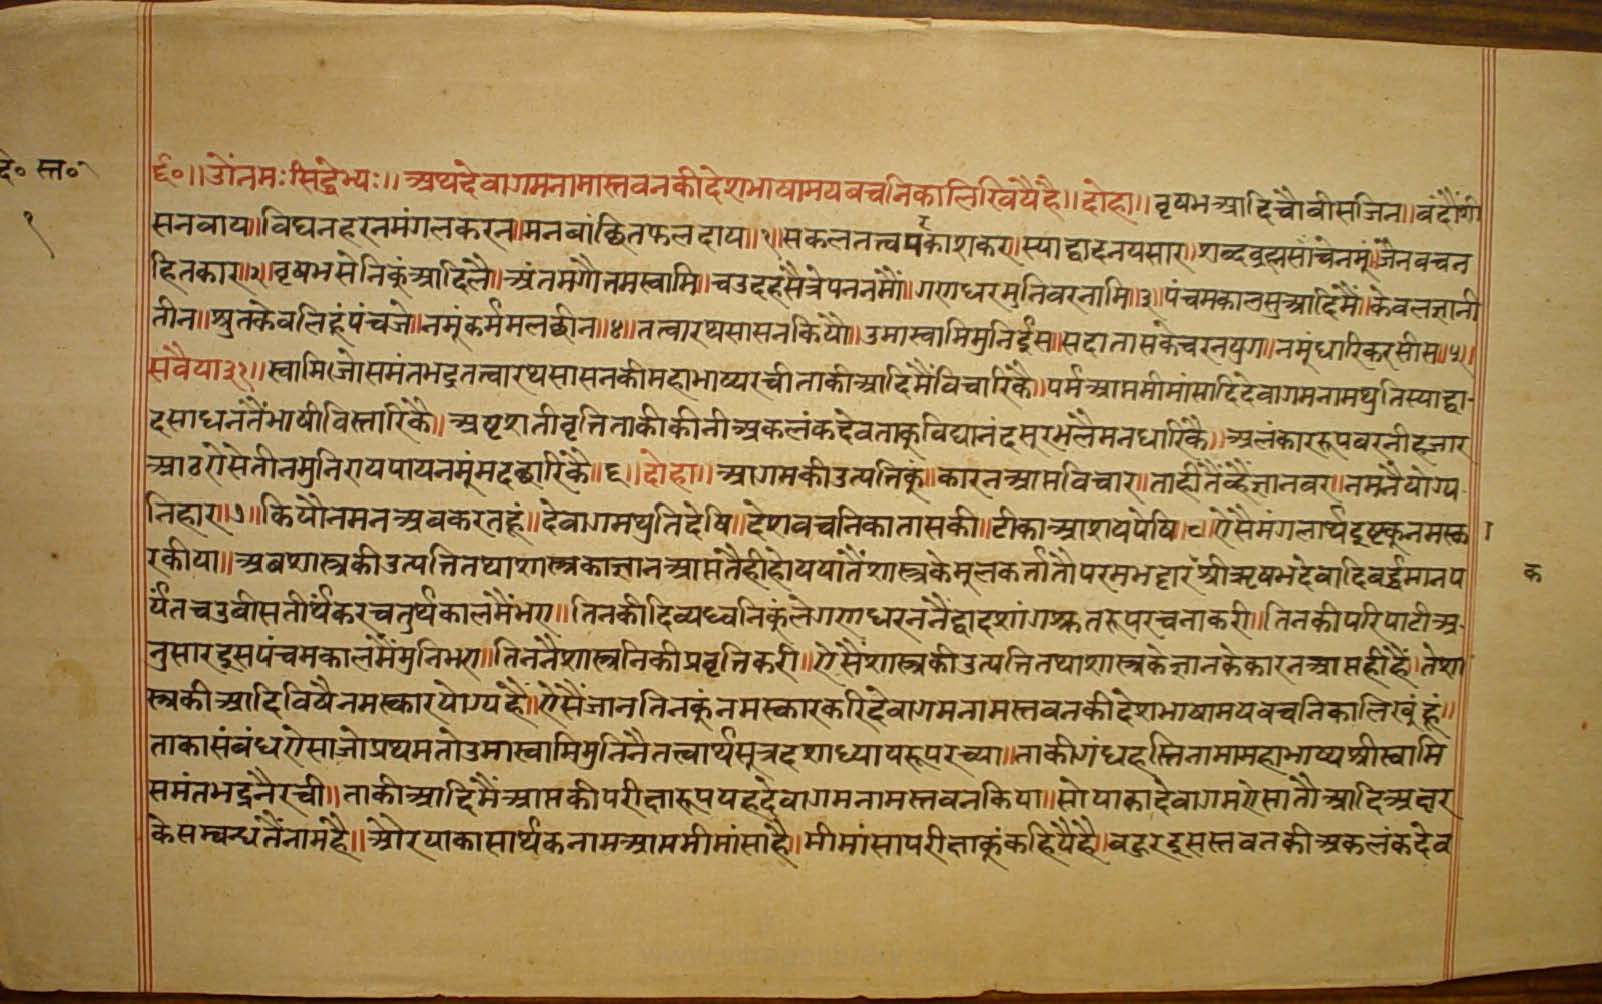 दे॰ स्त॰
१
॥६०॥ ओंनमःसिद्धेभ्यः॥ अथदेवागमनामास्तवनकीदेशभाषामयबचनिकालिखियैहै॥ दोहा॥ वृषभआदिचौवीसजिन॥ वंदौंशी
सनवाय॥ विघनहरनमंगलकरन॥ मनवांछितफलदाय॥१॥ सकलतत्त्वपर्काशकर॥ स्याद्वादनयसार॥ शब्दब्रह्मसांचेनमूं॥ जैनवचन
हितकार॥२॥ वृषभसेनिकुंआदिलै॥ अंतमगौतमस्वामि॥ चउदहसैत्रेपननमौं॥ गणधरमुनिवरनामि॥३॥ पंचमकालसुआदिमैं॥ केवलज्ञानी
तीन॥ श्रुतकेवलिहूंपंचजे॥ नमूंकर्ममलछीन॥४॥ तत्वारथसासनकियौ॥ उमास्वामिमुनिईस॥ सदातासकेचरनयुग॥ नमूंधारिकरसीस॥५॥
सवैया३१॥ स्वामिजोसमंतभद्रतत्वारथसासनकीमहाभाष्यरचीताकीआदिमैंविचारिकै॥ पर्मआप्तमीमांसादिदेवागमनामथुतिस्याद्वा-
दसाधनतैंभाषीविस्तारिकै॥ अष्टशतीवृत्तिताकीकीनीअकलंकदेवताकुविद्यानंदसूरभलैमनधारिकै॥ अलंकाररूपवरनीहजार
आठऐसेतीनमुनिरायपायनमूंमदछारिकै॥६॥ दोहा॥ आगमकीउत्पत्तिकुं॥ कारनआप्तविचार॥ ताहीतैंव्हैज्ञानवर॥ नमनैयोग्य
निहार॥७॥ कियौनमनअवकरतहूं॥ देवागमथुतिदेषि॥ देशवचनिकातासकी॥ टीकाआशयपेषि॥८॥ ऐसैमंगलार्थइष्टकूनमस्का
रकीया॥ अबशास्त्रकीउत्पत्तितथाशास्त्रकाज्ञानआप्ततैहीहोययातैंशास्त्रकेमूलकर्त्तातौपरमभट्टारकश्रीऋषभदेवादिवर्द्धमानप
क
र्यंतचउवीसतीर्थंकरचतुर्थकालमैंभए॥ तिनकीदिव्यध्वनिकुंलेगणधरननैंद्वादशांगश्रुतरूपरचनाकरी॥ तिनकीपरिपाटीअ-
नुसारइसपंचमकालमैंमुनिभए॥ तिननैंशास्त्रनिकीप्रवृत्तिकरी॥ ऐसैंशास्त्रकीउत्पत्तितथाशास्त्रकेज्ञानकेकारनआप्तहीहैं॥ तेशा
स्त्रकीआदिविषैनमस्कारयोग्यहैं॥ ऐसैंजानतिनकुंनमस्कारकरिदेवागमनामस्तवनकीदेशभाषामयवचनिकालिखुंहूं॥
ताकासंबंधऐसाजोप्रथमतोउमास्वामिमुनिनैतत्त्वार्थसूत्रदशाध्यायरूपरच्या॥ ताकीगंधहस्तिनामामहाभाष्यश्रीस्वामि
समंतभद्रनैरची॥ ताकीआदिमैंआप्तकीपरीक्षारूपयहदेवागमनामस्तवनकिया॥ सोयाकादेवागमऐसातौआदिअक्षर
केसम्बन्धतैंनामहै॥ औरयाकासार्थकनामआप्तमीमांसाहै॥ मीमांसापरीक्षाकुंकहियैहै॥ बहुरइसस्तवनकीअकलंकदेव